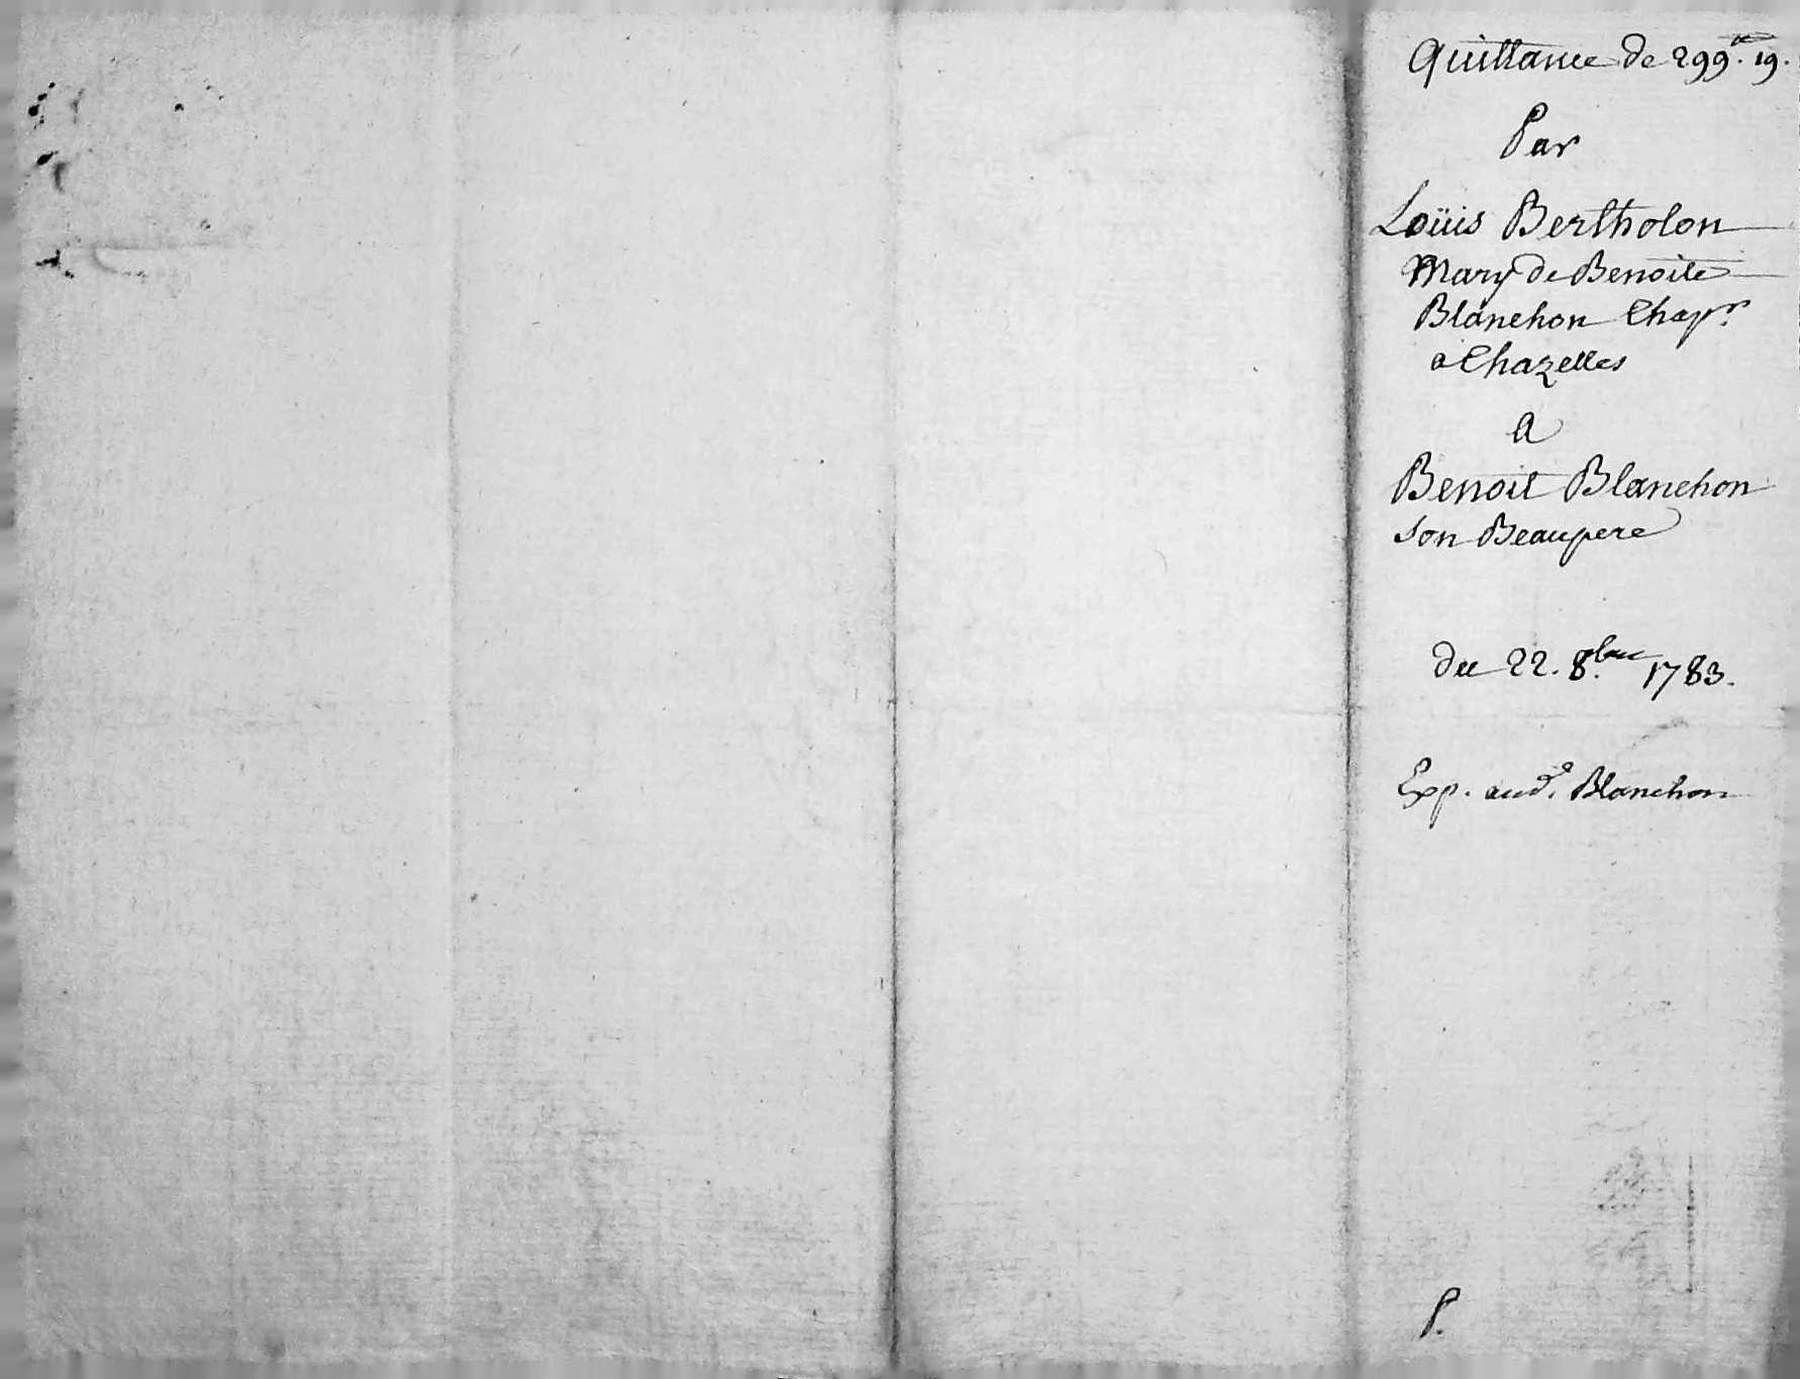 Quittance de 299.tt 19.
Par
Loüis Bertholon
Mary de Benoite
Blanchon Chapr.
a Chazelles
A
Benoit Blanchon
son Beaupere
du 22. 8bre 1783.
Exp. aud. Blanchon
P.